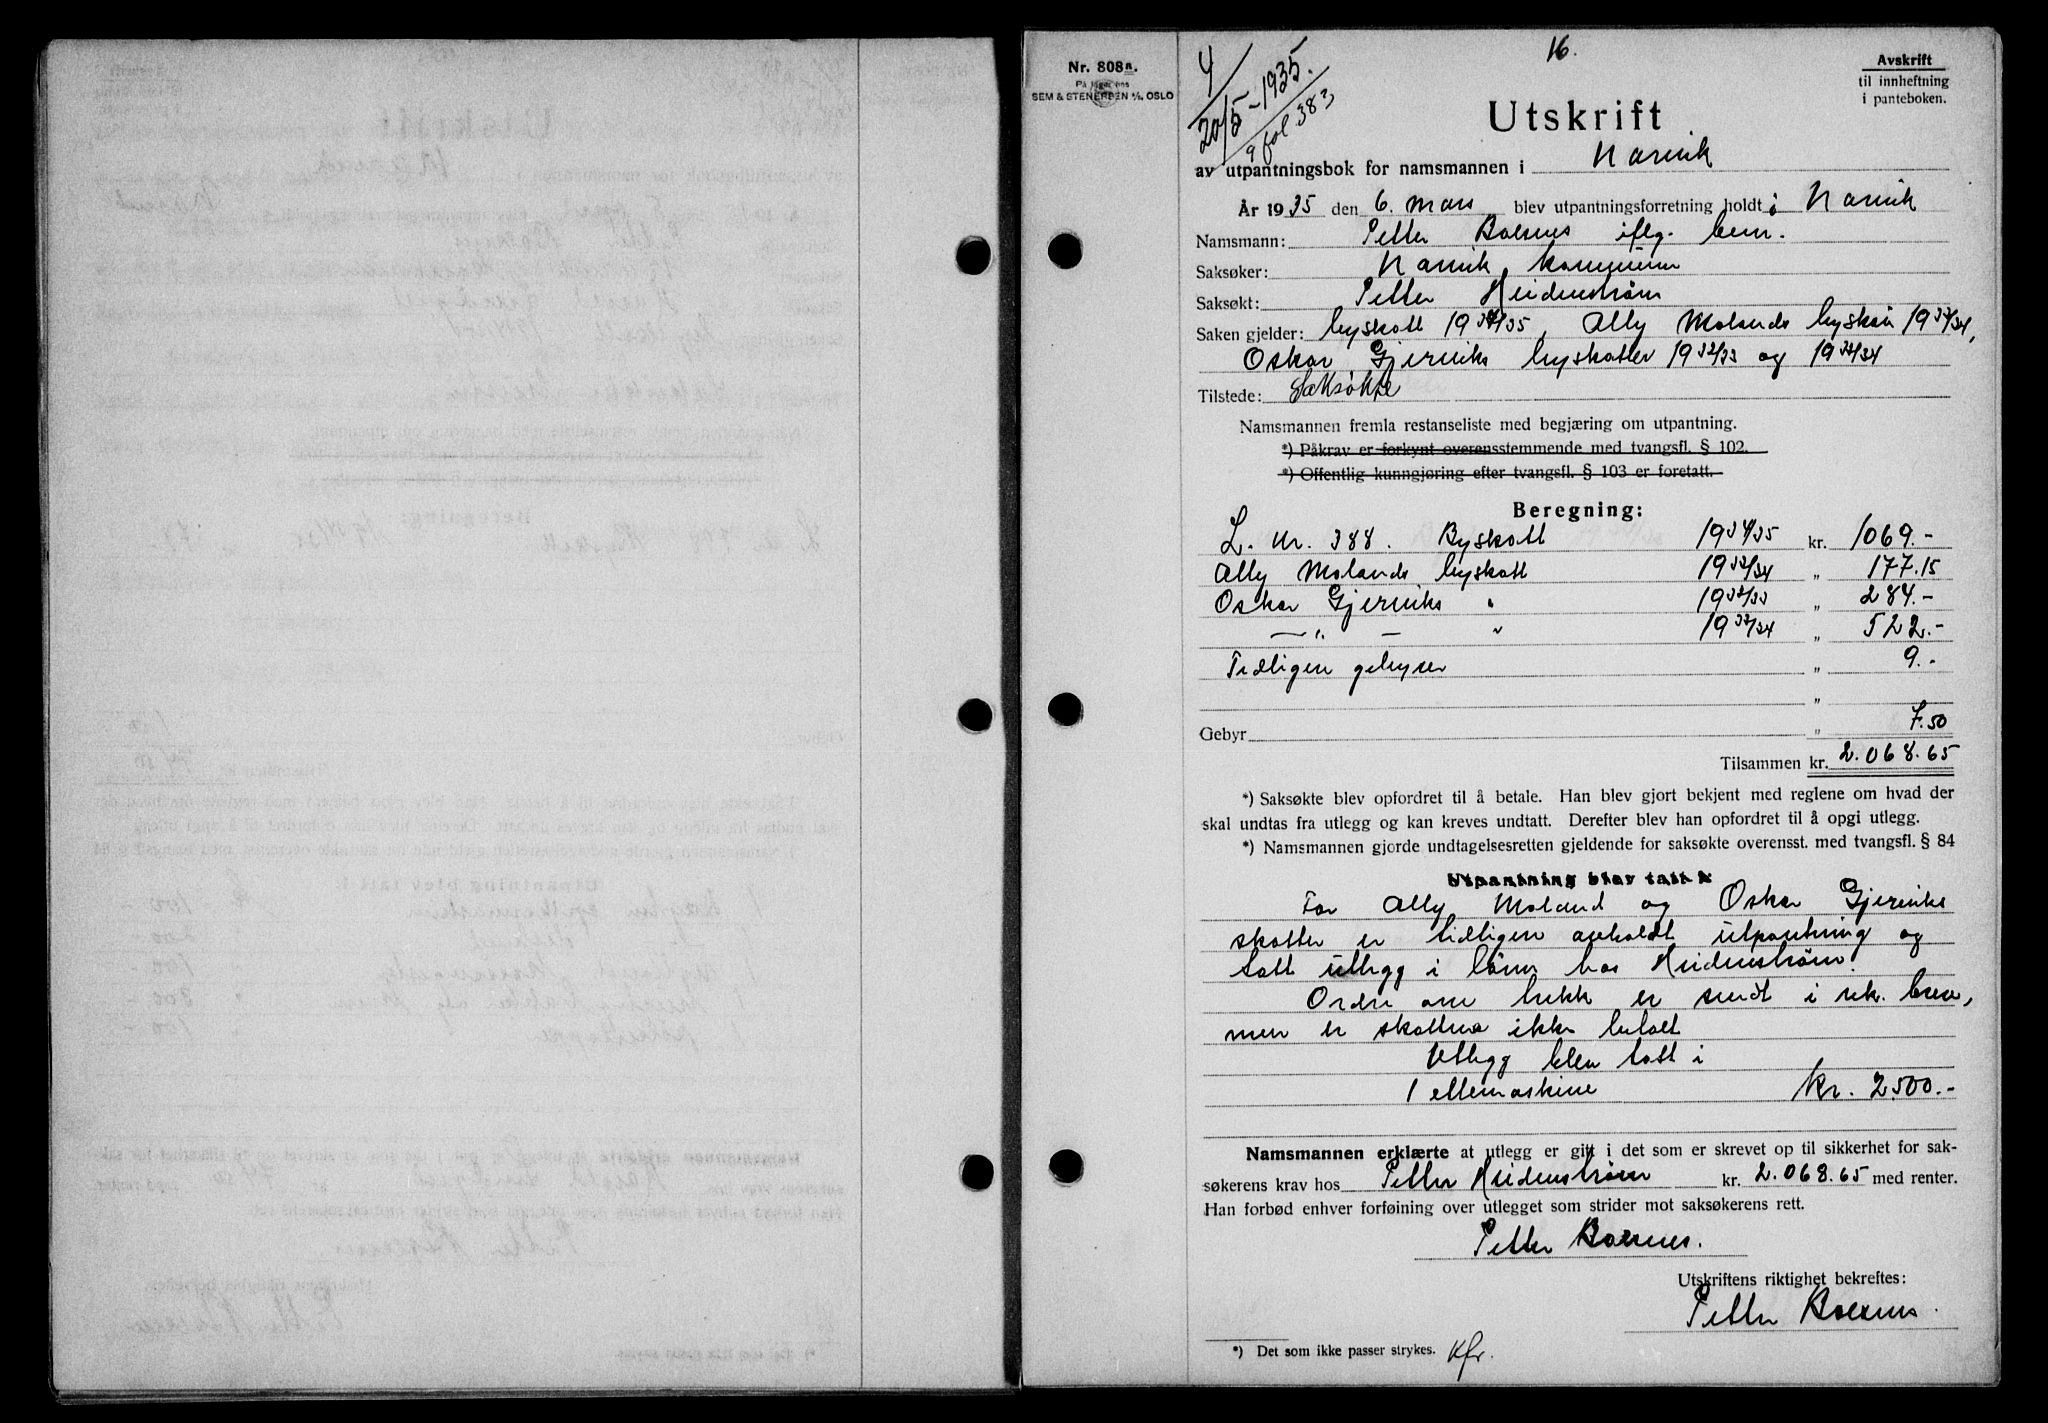 16.
Nr. 808a.
På lager hos
SEM & STENERSEN A/S, OSLO
4
20/5-1935.
9 fol. 383
Avskrift
til innheftning
i panteboken.
Utskrift
av utpantningsbok for namsmannen i Narvik
År 1935 den 6. mars blev utpantningsforretning holdt i Narvik
Namsmann: Petter iflg. bem.
Saksøker: Narvik kommune
Saksøkt: Petter Heidenstrøm
Saken gjelder: byskatt 1934/35, Ally Molands byskatt 1933/34,
Oskar Gjerviks byskatter 1932/33 og 1933/34
Tilstede: Saksøkte
Namsmannen fremla restanseliste med begjæring om utpantning.
*) Påkrav er forkynt overensstemmende med tvangsfl. § 102.
*) Offentlig kunngjøring efter tvangsfl. § 103 er foretatt.
Beregning:
L. nr. 388. Byskatt 1934/35 kr. 1069.-
Ally Molands byskatt 1933/34 „ 177.15
Oskar Gjerviks " 1932/33 „ 284.-
—"— " 1933/34 „ 522.-
Tidligere gebyrer „ 9.-
„
Gebyr „ 7.50
Tilsammen kr. 2.068.65
*) Saksøkte blev opfordret til å betale. Han blev gjort bekjent med reglene om hvad der
skal undtas fra utlegg og kan kreves undtatt. Derefter blev han opfordret til å opgi utlegg.
*) Namsmannen gjorde undtagelsesretten gjeldende for saksøkte overensst. med tvangsfl. § 84
Utpantning blev tatt i
For Ally Moland og Oskar Gjerviks
skatter er tidligere avholdt utpantning og
tatt utlegg i lønn hos Heidenstrøm.
Ordre om trekk er sendt i rek. brev,
men er skattene ikke betalt
Utlegg blev tatt i
1 eltemaskine kr. 2.500.-
Namsmannen erklærte at utlegg er gitt i det som er skrevet op til sikkerhet for sak-
søkerens krav hos Petter Heidenstrøm kr. 2.068.65 med renter.
Han forbød enhver forføining over utlegget som strider mot saksøkerens rett.
Petter
Utskriftens riktighet bekreftes:
Petter
*) Det som ikke passer strykes.
Kfr.